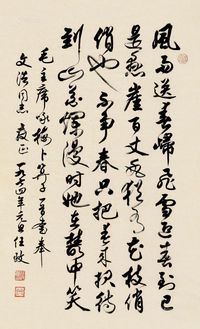 風雨送春歸飛雪迎春到已
是懸崖百丈冰猶有花枝俏
俏也不争春只把春来报待
到山花爛漫時她在叢中笑
毛主席咏梅卜算子一首書奉
文浩同志 教正 一九七四年元旦任政